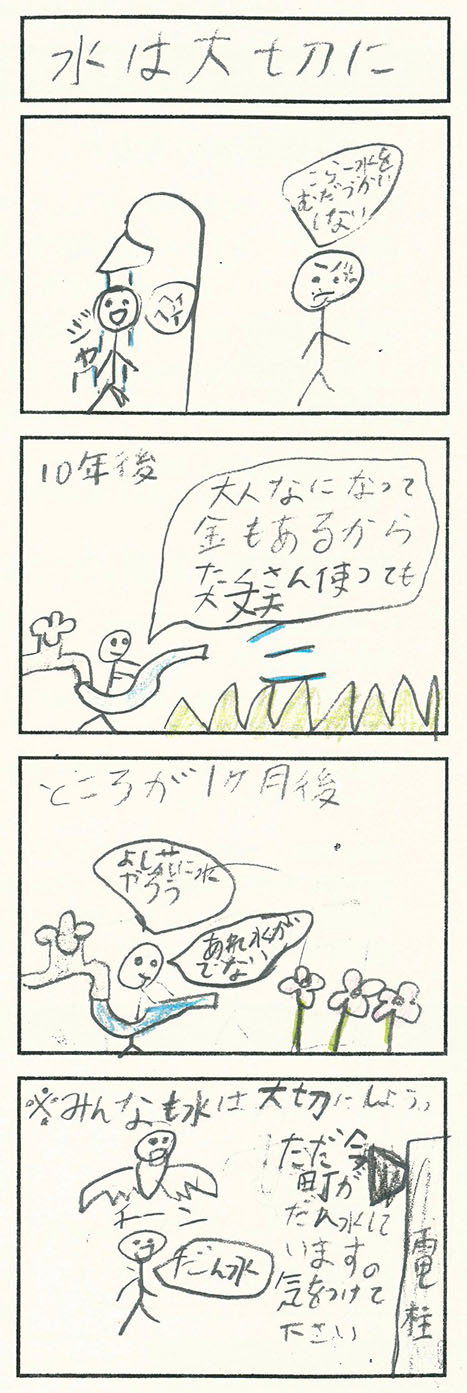 水は大切に
こらー水を
むだづかい
しない
ヘイ
ヘイ
ジャー
10年後
大人なになって
金もあるから
たくさん使っても
大丈夫
ところが1ヶ月後
よし花に水
やろう
あれ水が
でない
※みんなも水は大切にしよう。
ただ今
町が
だん水して
います。
気をつけて
下さい
電柱
チーン
だん水